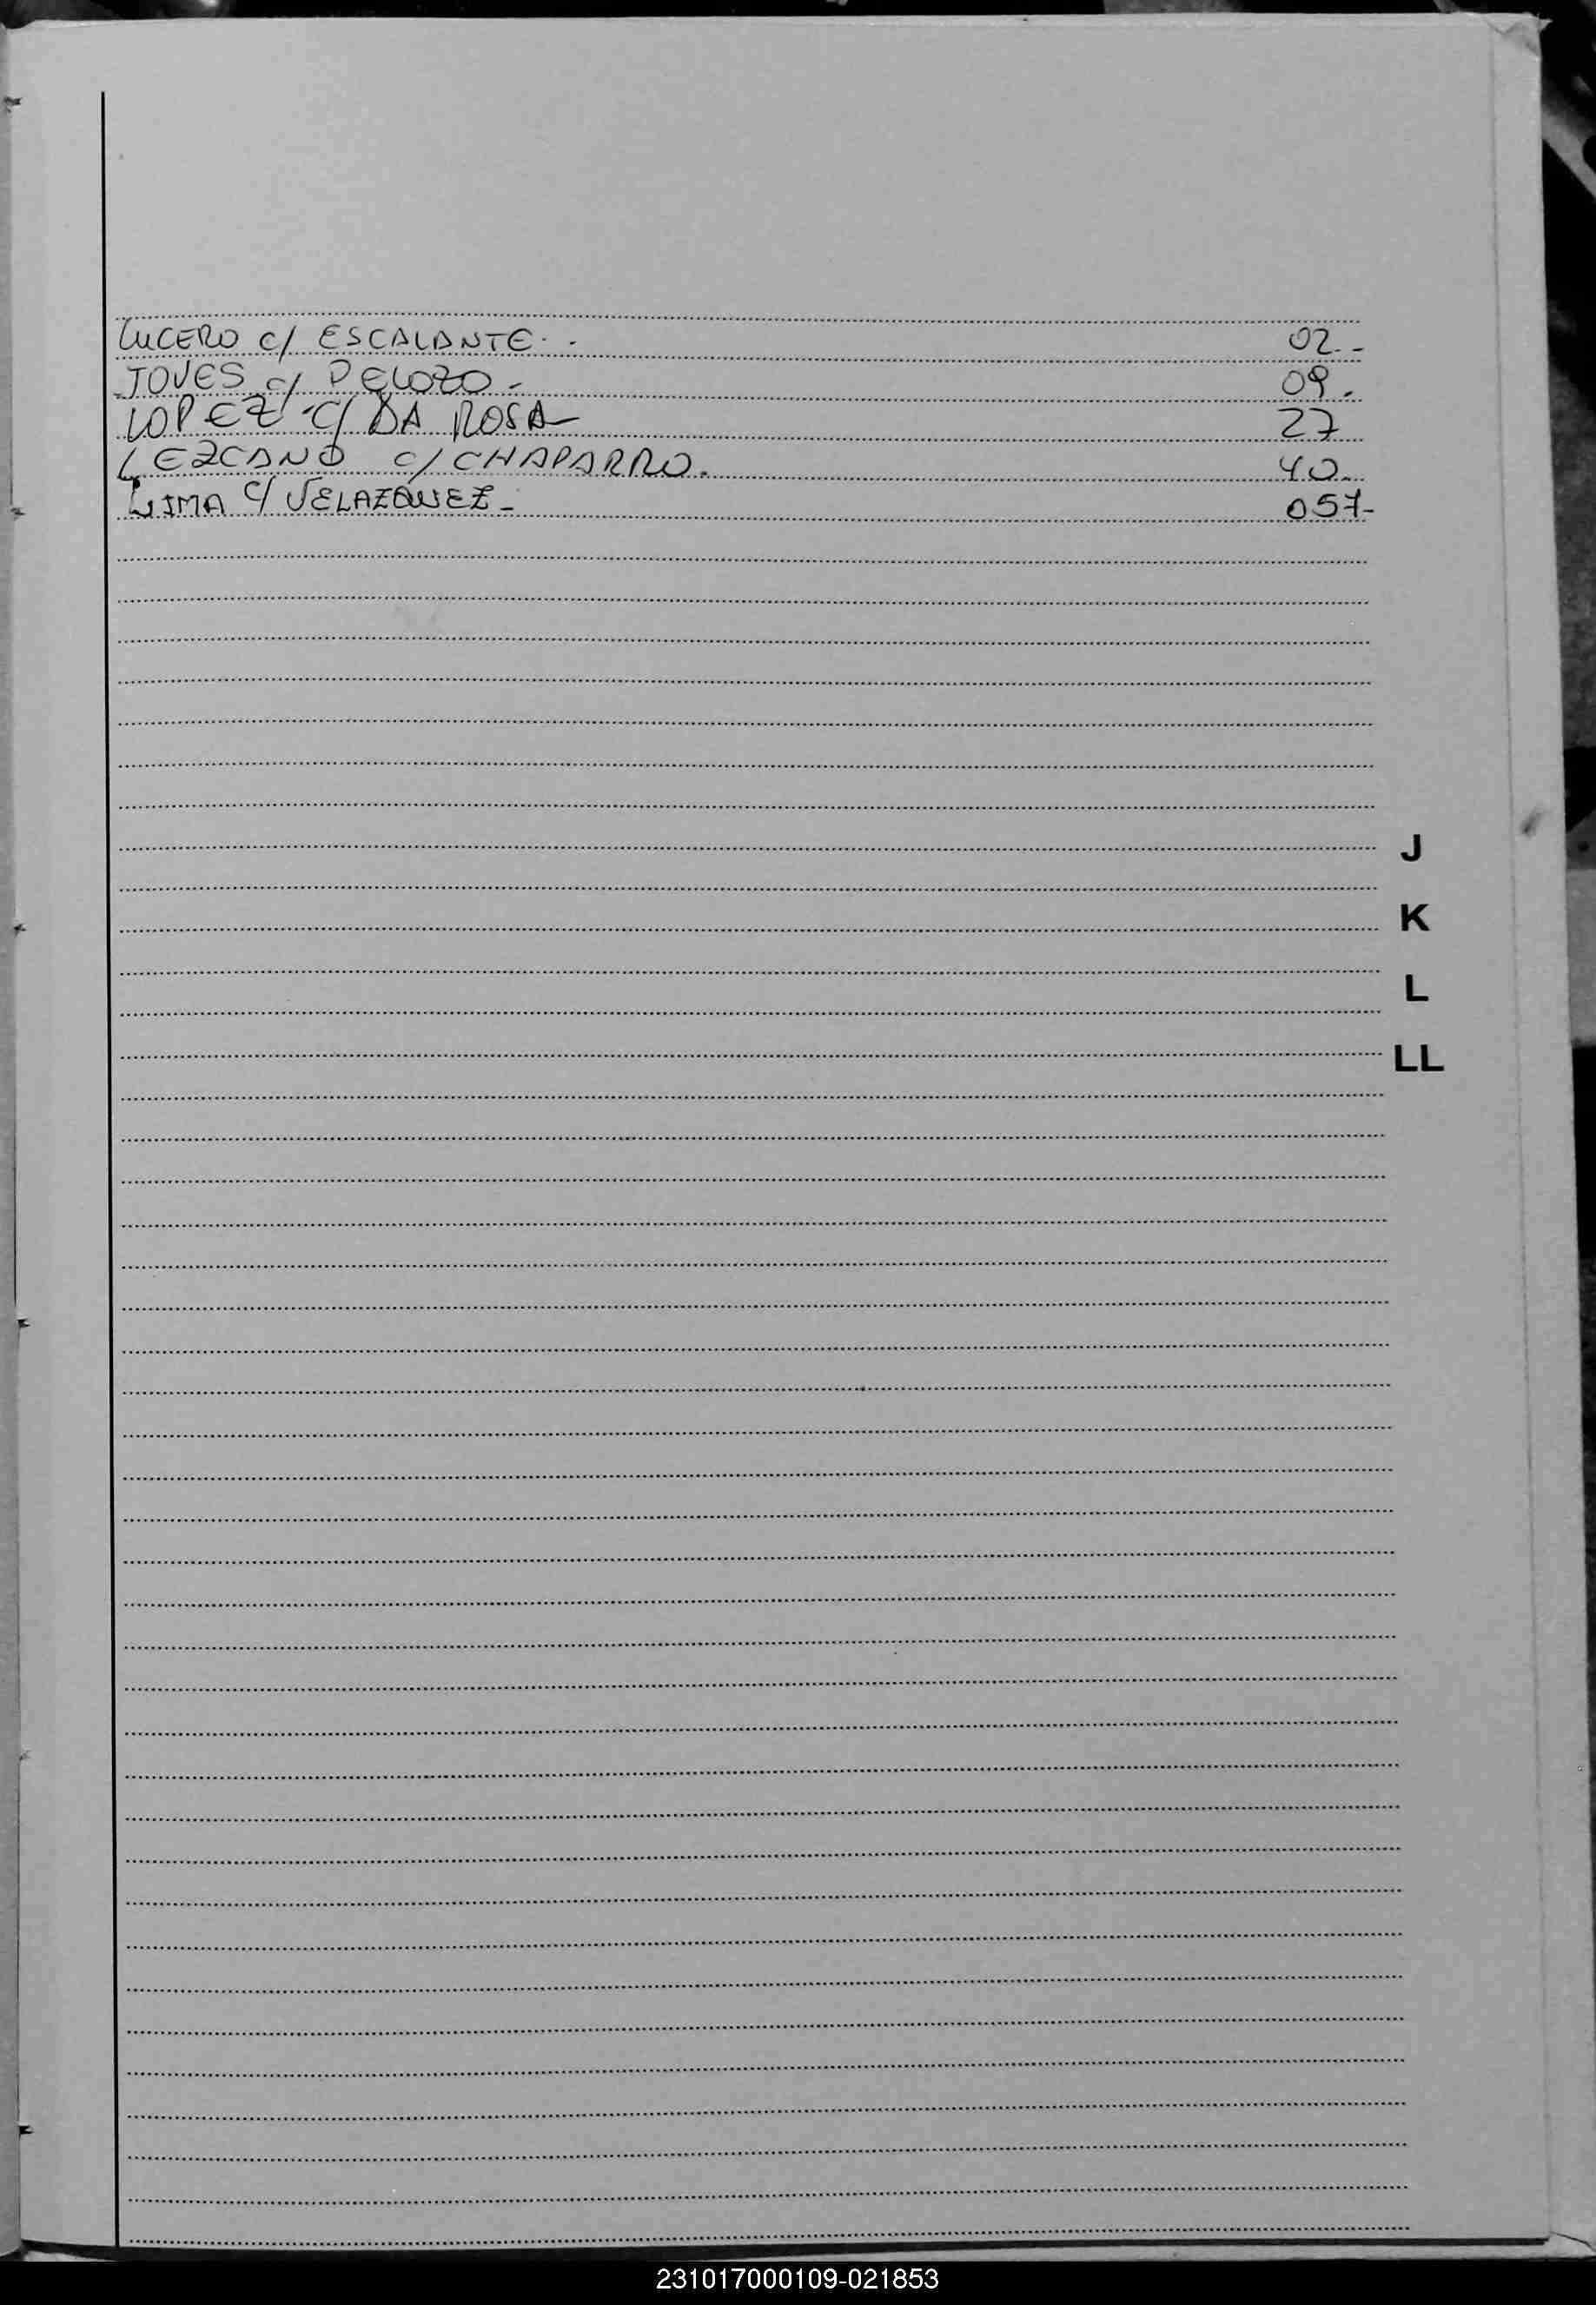 LUCERO c/ ESCALANTE. - 02.-
JOVES c/ PELOZO.- 09.
LOPEZ C/ DA ROSA- 27
LEZCANO c/ CHAPARRO. 40.
LIMA C/ VELAZQUEZ- 057-
J
K
L
LL
231017000109-021853